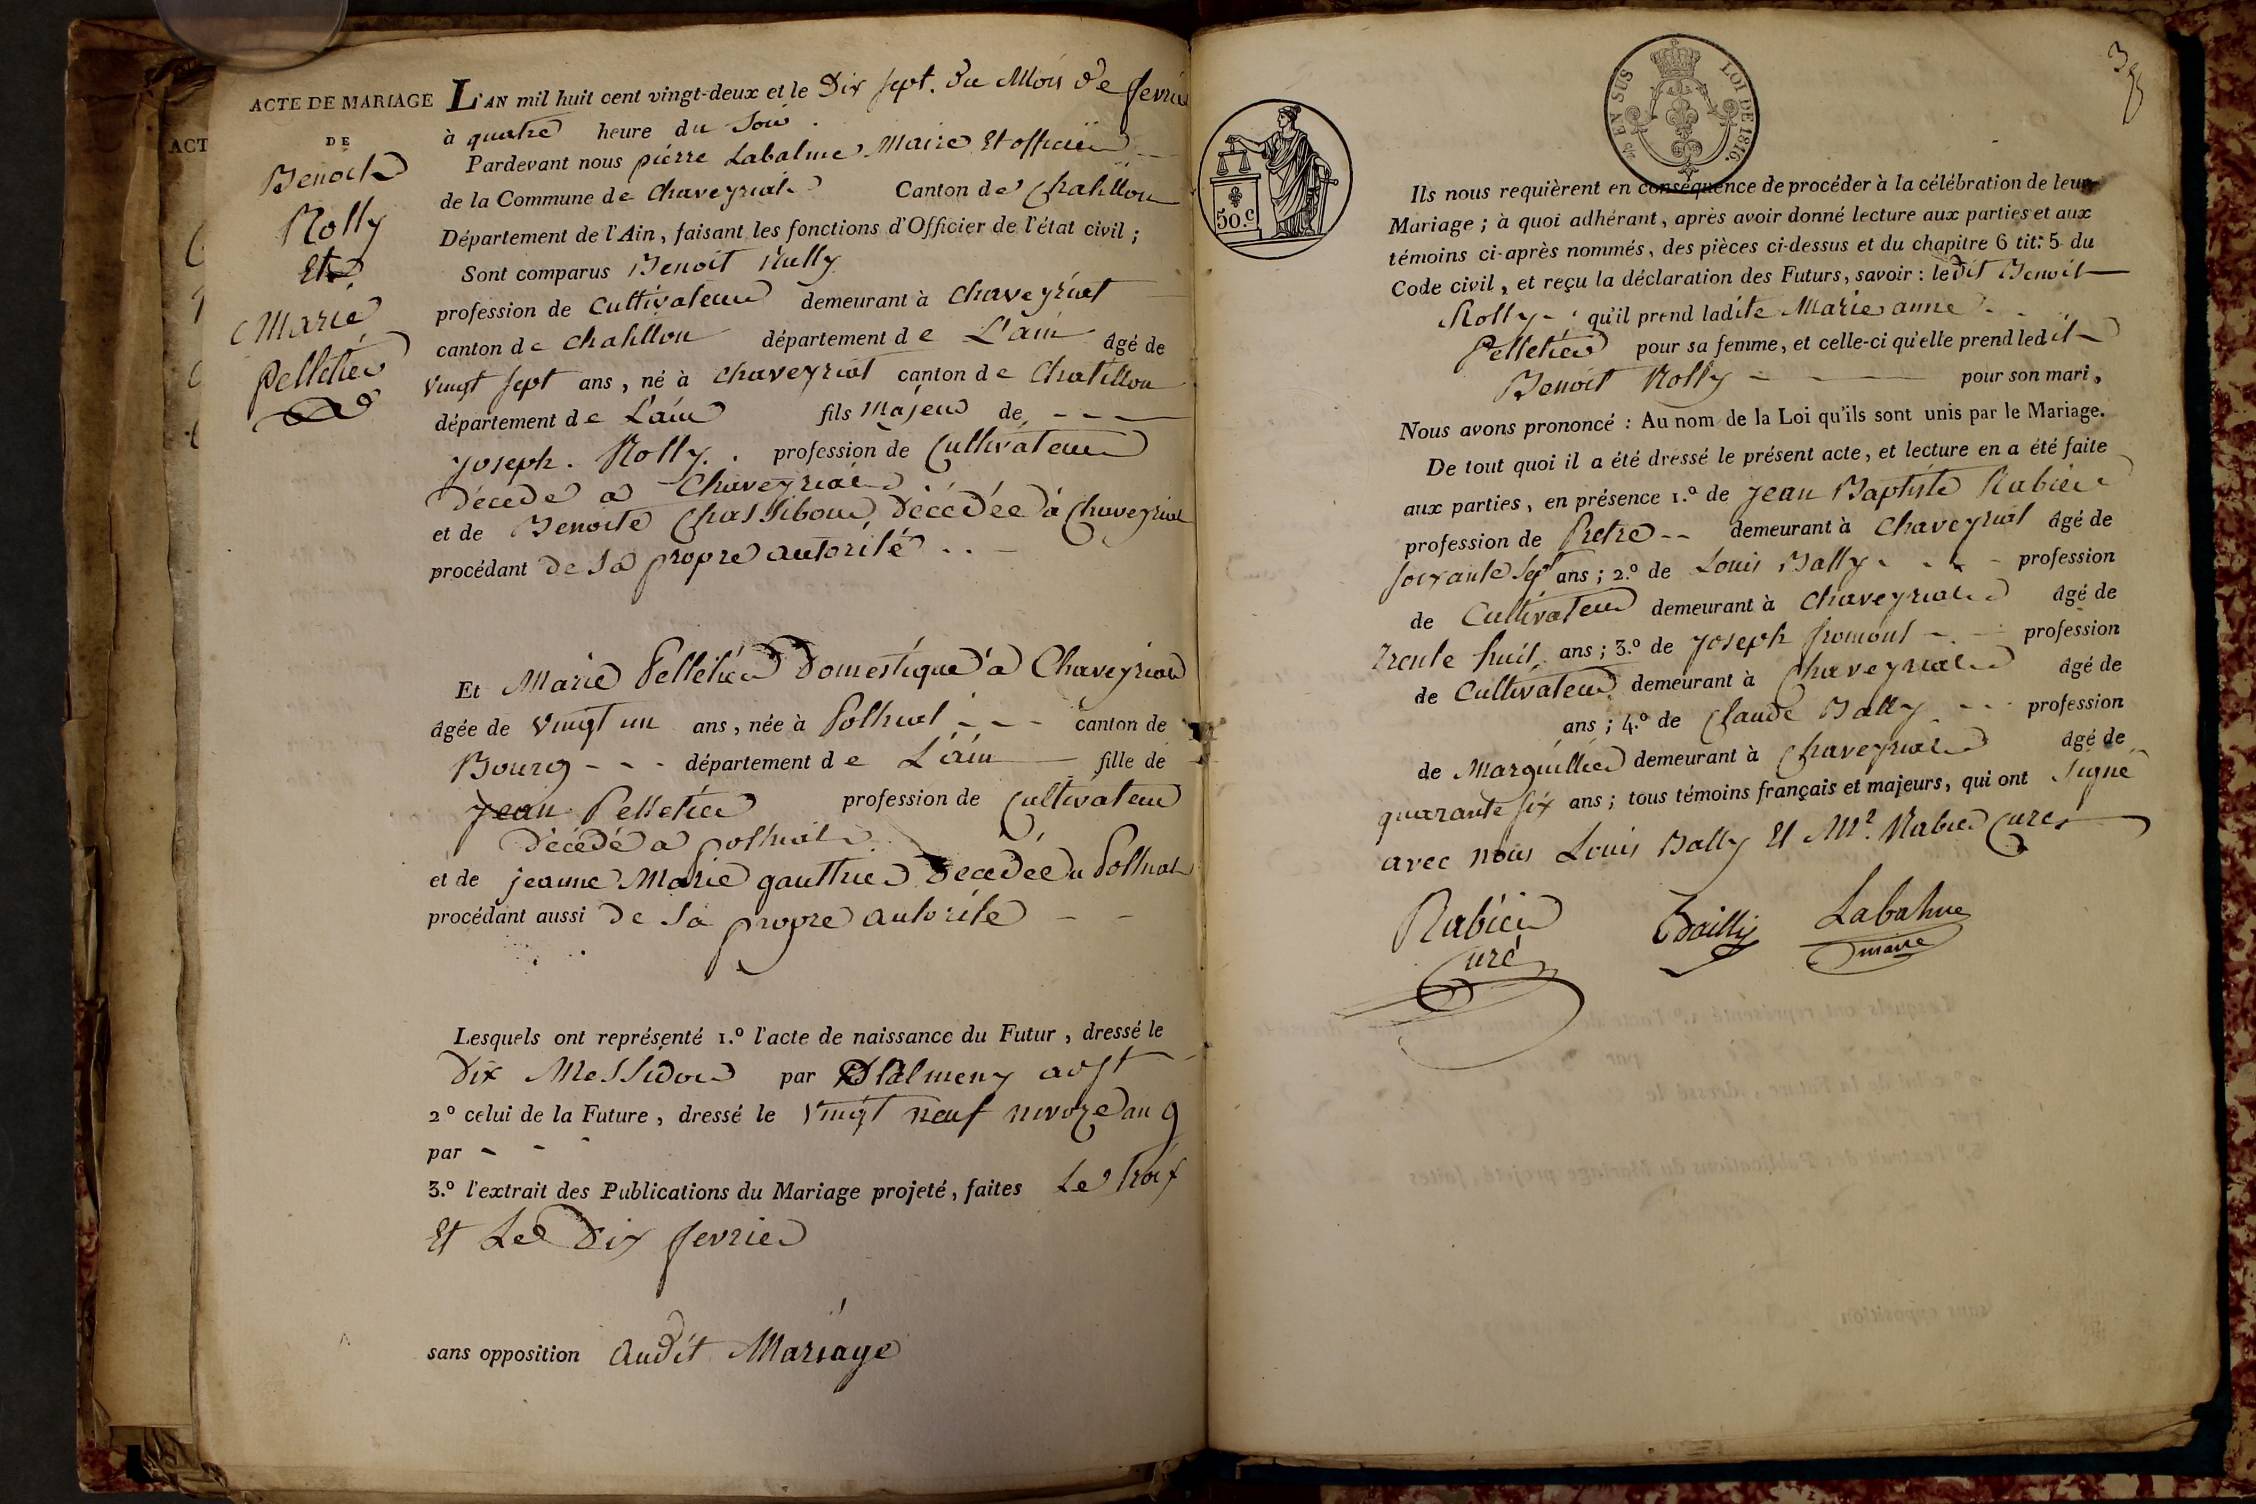 ACTE DE MARIAGE
DE
Benoit
Rolly
Et
Marie
Pelletier
ACT
L'AN mil huit cent vingt-deux et le Dix sept. du Mois de fevrier
à quatre heure du Soir.
Pardevant nous pierre Labalme Maire Et officier
de la Commune de Chaveyriat Canton de Chatillon
Département de l'Ain, faisant les fonctions d'Officier de l'état civil;
Sont comparus Benoit Rolly
profession de Cultivateur demeurant à Chaveyriat
canton de Chatillon département de L'ain âgé de
vingt sept ans, né à Chaveyriat canton de Chatillon
département de L'ain fils Majeur de
Joseph. Rolly. profession de Cultivateur
Décédé a Chaveyriat
et de Benoite Décédée à Chaveyriat
procédant de sa propre autorité
Et Marie Pelletier Domestique a Chaveyriat
âgée de vingt un ans, née à Polliat canton de
Bourg département de L'ain fille de
Jean Pelletier profession de Cultivateur
Décédé a polliat
et de jeanne Marie gauthier Decedée a Polliat
procédant aussi de sa propre autorité
Lesquels ont représenté 1.º l'acte de naissance du Futur, dressé le
Dix Messidor par
2º celui de la Future, dressé le Vingt neuf nivoze an 9
par
3.º l'extrait des Publications du Mariage projeté, faites Le trois
Et Le Dix fevrier
sans opposition audit Mariage
EN SUS
LOI DE 1816.
50.c
Ils nous requièrent en conséquence de procéder à la célébration de leur
Mariage; à quoi adhérant, après avoir donné lecture aux parties et aux
témoins ci-après nommés, des pièces ci-dessus et du chapitre 6 tit. 5 du
Code civil, et reçu la déclaration des Futurs, savoir: ledit Benoit
Rolly qu'il prend ladite Marie anne
Pelletier pour sa femme, et celle-ci qu'elle prend ledit
Benoit Rolly pour son mari,
Nous avons prononcé: Au nom de la Loi qu'ils sont unis par le Mariage.
De tout quoi il a été dressé le présent acte, et lecture en a été faite
aux parties, en présence 1.º de Jean Baptiste Rabier
profession de Pretre demeurant à Chaveyriat âgé de
soixante sept ans; 2.º de Louis Bally profession
de Cultivateur demeurant à Chaveyriat âgé de
Trente huit ans; 3.º de Joseph fromont profession
de Cultivateur demeurant à Chaveyriat âgé de
ans; 4.º de Claude Bally profession
de Marguillier demeurant à Chaveyriat âgé de
quarante six ans; tous témoins français et majeurs, qui ont Signé
avec nous Louis Bally Et Mr. Rabier Curé
Rabier Bailly Labalme
Curé maire